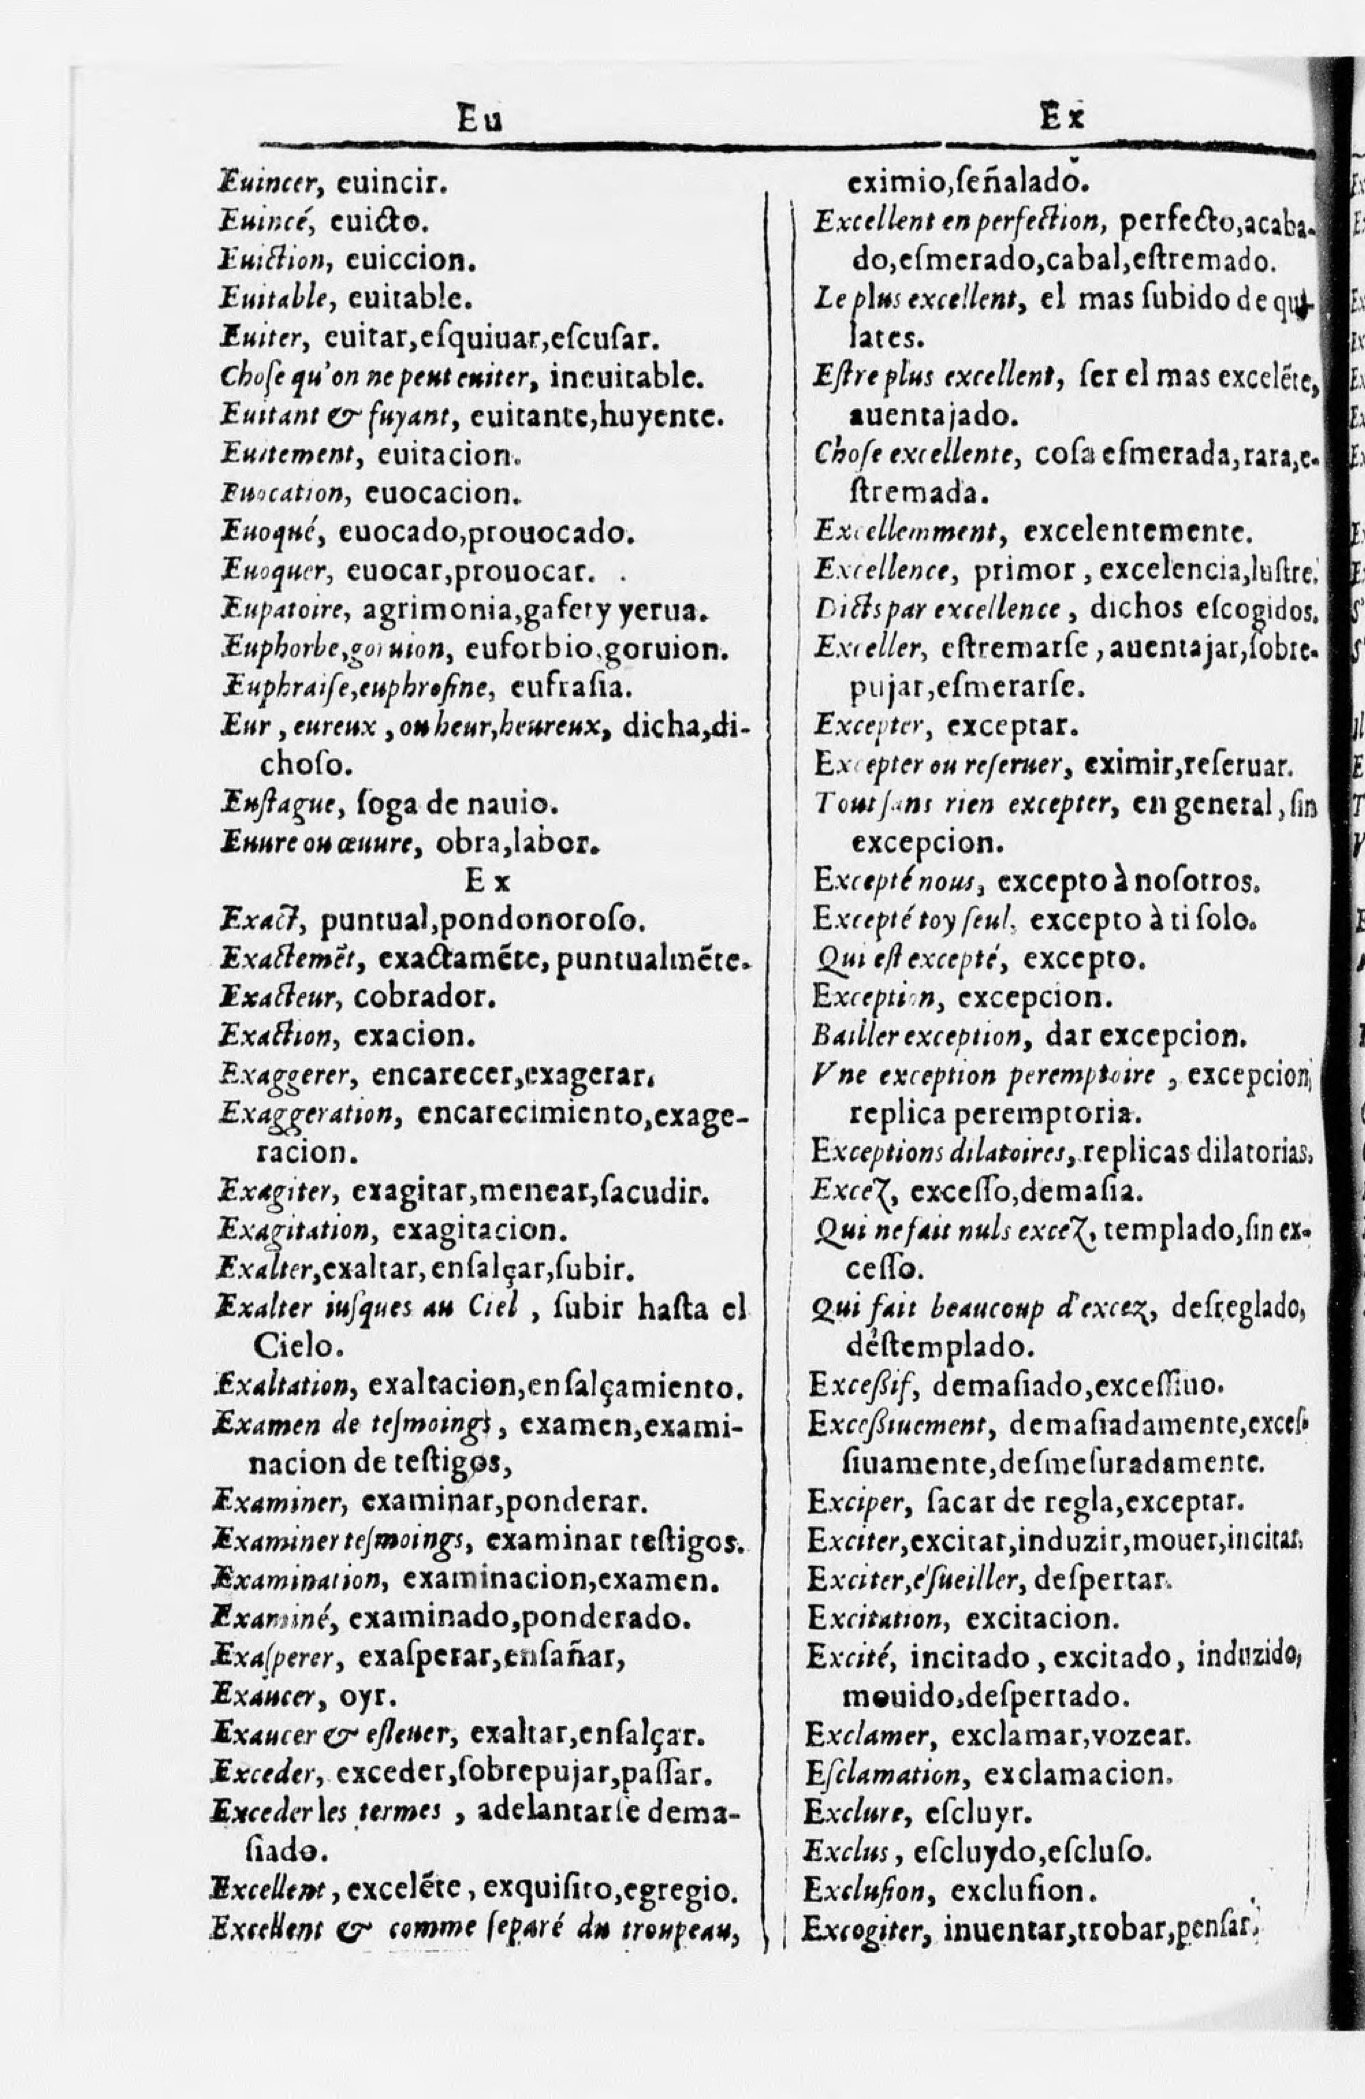 Eu
Euincer, euincir.
Euincé, euicto.
Euiction, euiccion.
Euitable, euitable.
Euiter, euitar,eſquiuar,eſcuſar.
Choſe qu'on ne peut euiter, ineuitable.
Euitant & fuyant, euitante,huyente.
Euitement, euitacion.
Euocation, euocacion.
Euoqué, euocado,prouocado.
Euoquer, euocar,prouocar.
Eupatoire, agrimonia,gafety yerua.
Euphorbe,goruion, euforbio,goruion.
Euphraiſe,euphroſine, eufraſia.
Eur , eureux , ou heur,heureux, dicha,di-
choſo.
Euſtague, ſoga de nauio.
Euure ou œuure, obra,labor.
Ex
Exact, puntual,pondonoroſo.
Exactemẽt, exactamẽte, puntualmẽte.
Exacteur, cobrador.
Exaction, exacion.
Exaggerer, encarecer,exagerar.
Exaggeration, encarecimiento,exage-
racion.
Exagiter, exagitar,menear,ſacudir.
Exagitation, exagitacion.
Exalter,exaltar, enſalçar,ſubir.
Exalter iuſques au Ciel , ſubir haſta el
Cielo.
Exaltation, exaltacion,enſalçamiento.
Examen de teſmoings, examen,exami-
nacion de teſtigos,
Examiner, examinar,ponderar.
Examiner teſmoings, examinar teſtigos.
Examination, examinacion,examen.
Examiné, examinado,ponderado.
Exaſperer, exaſperar,enſañar,
Exaucer, oyr.
Exaucer & eſleuer, exaltar,enſalçar.
Exceder, exceder,ſobrepujar,paſſar.
Exceder les termes , adelantarſe dema-
ſiado.
Excellent, excelẽte, exquiſito,egregio.
Excellent & comme ſeparé du troupeau,
Ex
eximio,ſeñalado.
Excellent en perfection, perfecto,acaba-
do,eſmerado,cabal,eſtremado.
Le plus excellent, el mas ſubido de qui-
lates.
Eſtre plus excellent, ſer el mas excelẽte,
auentajado.
Choſe excellente, coſa eſmerada,rara,e-
ſtremada.
Excellemment, excelentemente.
Excellence, primor , excelencia,luſtre.
Dicts par excellence , dichos eſcogidos.
Exceller, eſtremarſe , auentajar,ſobre-
pujar,eſmerarſe.
Excepter, exceptar.
Excepter ou reſeruer, eximir,reſeruar.
Tout ſans rien excepter, en general , ſin
excepcion.
Excepté nous, excepto à noſotros.
Excepté toy ſeul, excepto à ti ſolo.
Qui eſt excepté, excepto.
Exception, excepcion.
Bailler exception, dar excepcion.
Vne exception peremptoire , excepcion,
replica peremptoria.
Exceptions dilatoires, replicas dilatorias.
Excez, exceſſo,demaſia.
Qui ne fait nuls excez, templado,ſin ex-
ceſſo.
Qui fait beaucoup d'excez, deſreglado,
deſtemplado.
Exceßif, demaſiado,exceſſiuo.
Exceßiuement, demaſiadamente,exceſ-
ſiuamente,deſmeſuradamente.
Exciper, ſacar de regla,exceptar.
Exciter,excitar,induzir,mouer,incitar.
Exciter,eſueiller, deſpertar.
Excitation, excitacion.
Excité, incitado , excitado, induzido,
mouido,deſpertado.
Exclamer, exclamar,vozear.
Eſclamation, exclamacion.
Exclure, eſcluyr.
Exclus , eſcluydo,eſcluſo.
Excluſion, excluſion.
Excogiter, inuentar,trobar,penſar.